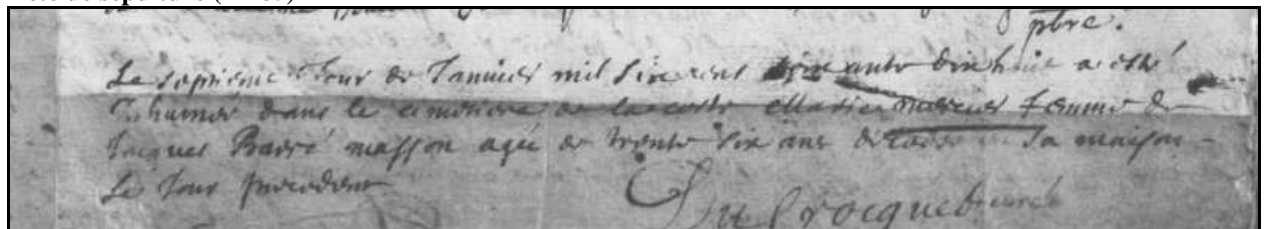 ptre.
Le septieme Jour de Januier mil six cent soixante dix huit a esté
Inhumée dans le cimetiere de la coste Marie mercier femme de
Jacques Barré masson agée de trente six ans decedée en sa maison
Le Jour precedent
Du Crocq curé